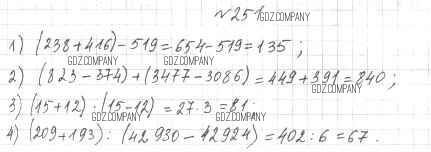 №251
GDZ.COMPANY
1) (238+416)-519=654-519=135;
GDZ.COMPANY GDZ.COMPANY
2) (823-374)+(3477-3086)=449+391=840;
GDZ.COMPANY
3) (15+12)·(15-12)=27·3=81;
GDZ.COMPANY GDZ.COMPANY
4) (209+193):(42930-42924)=402:6=67.